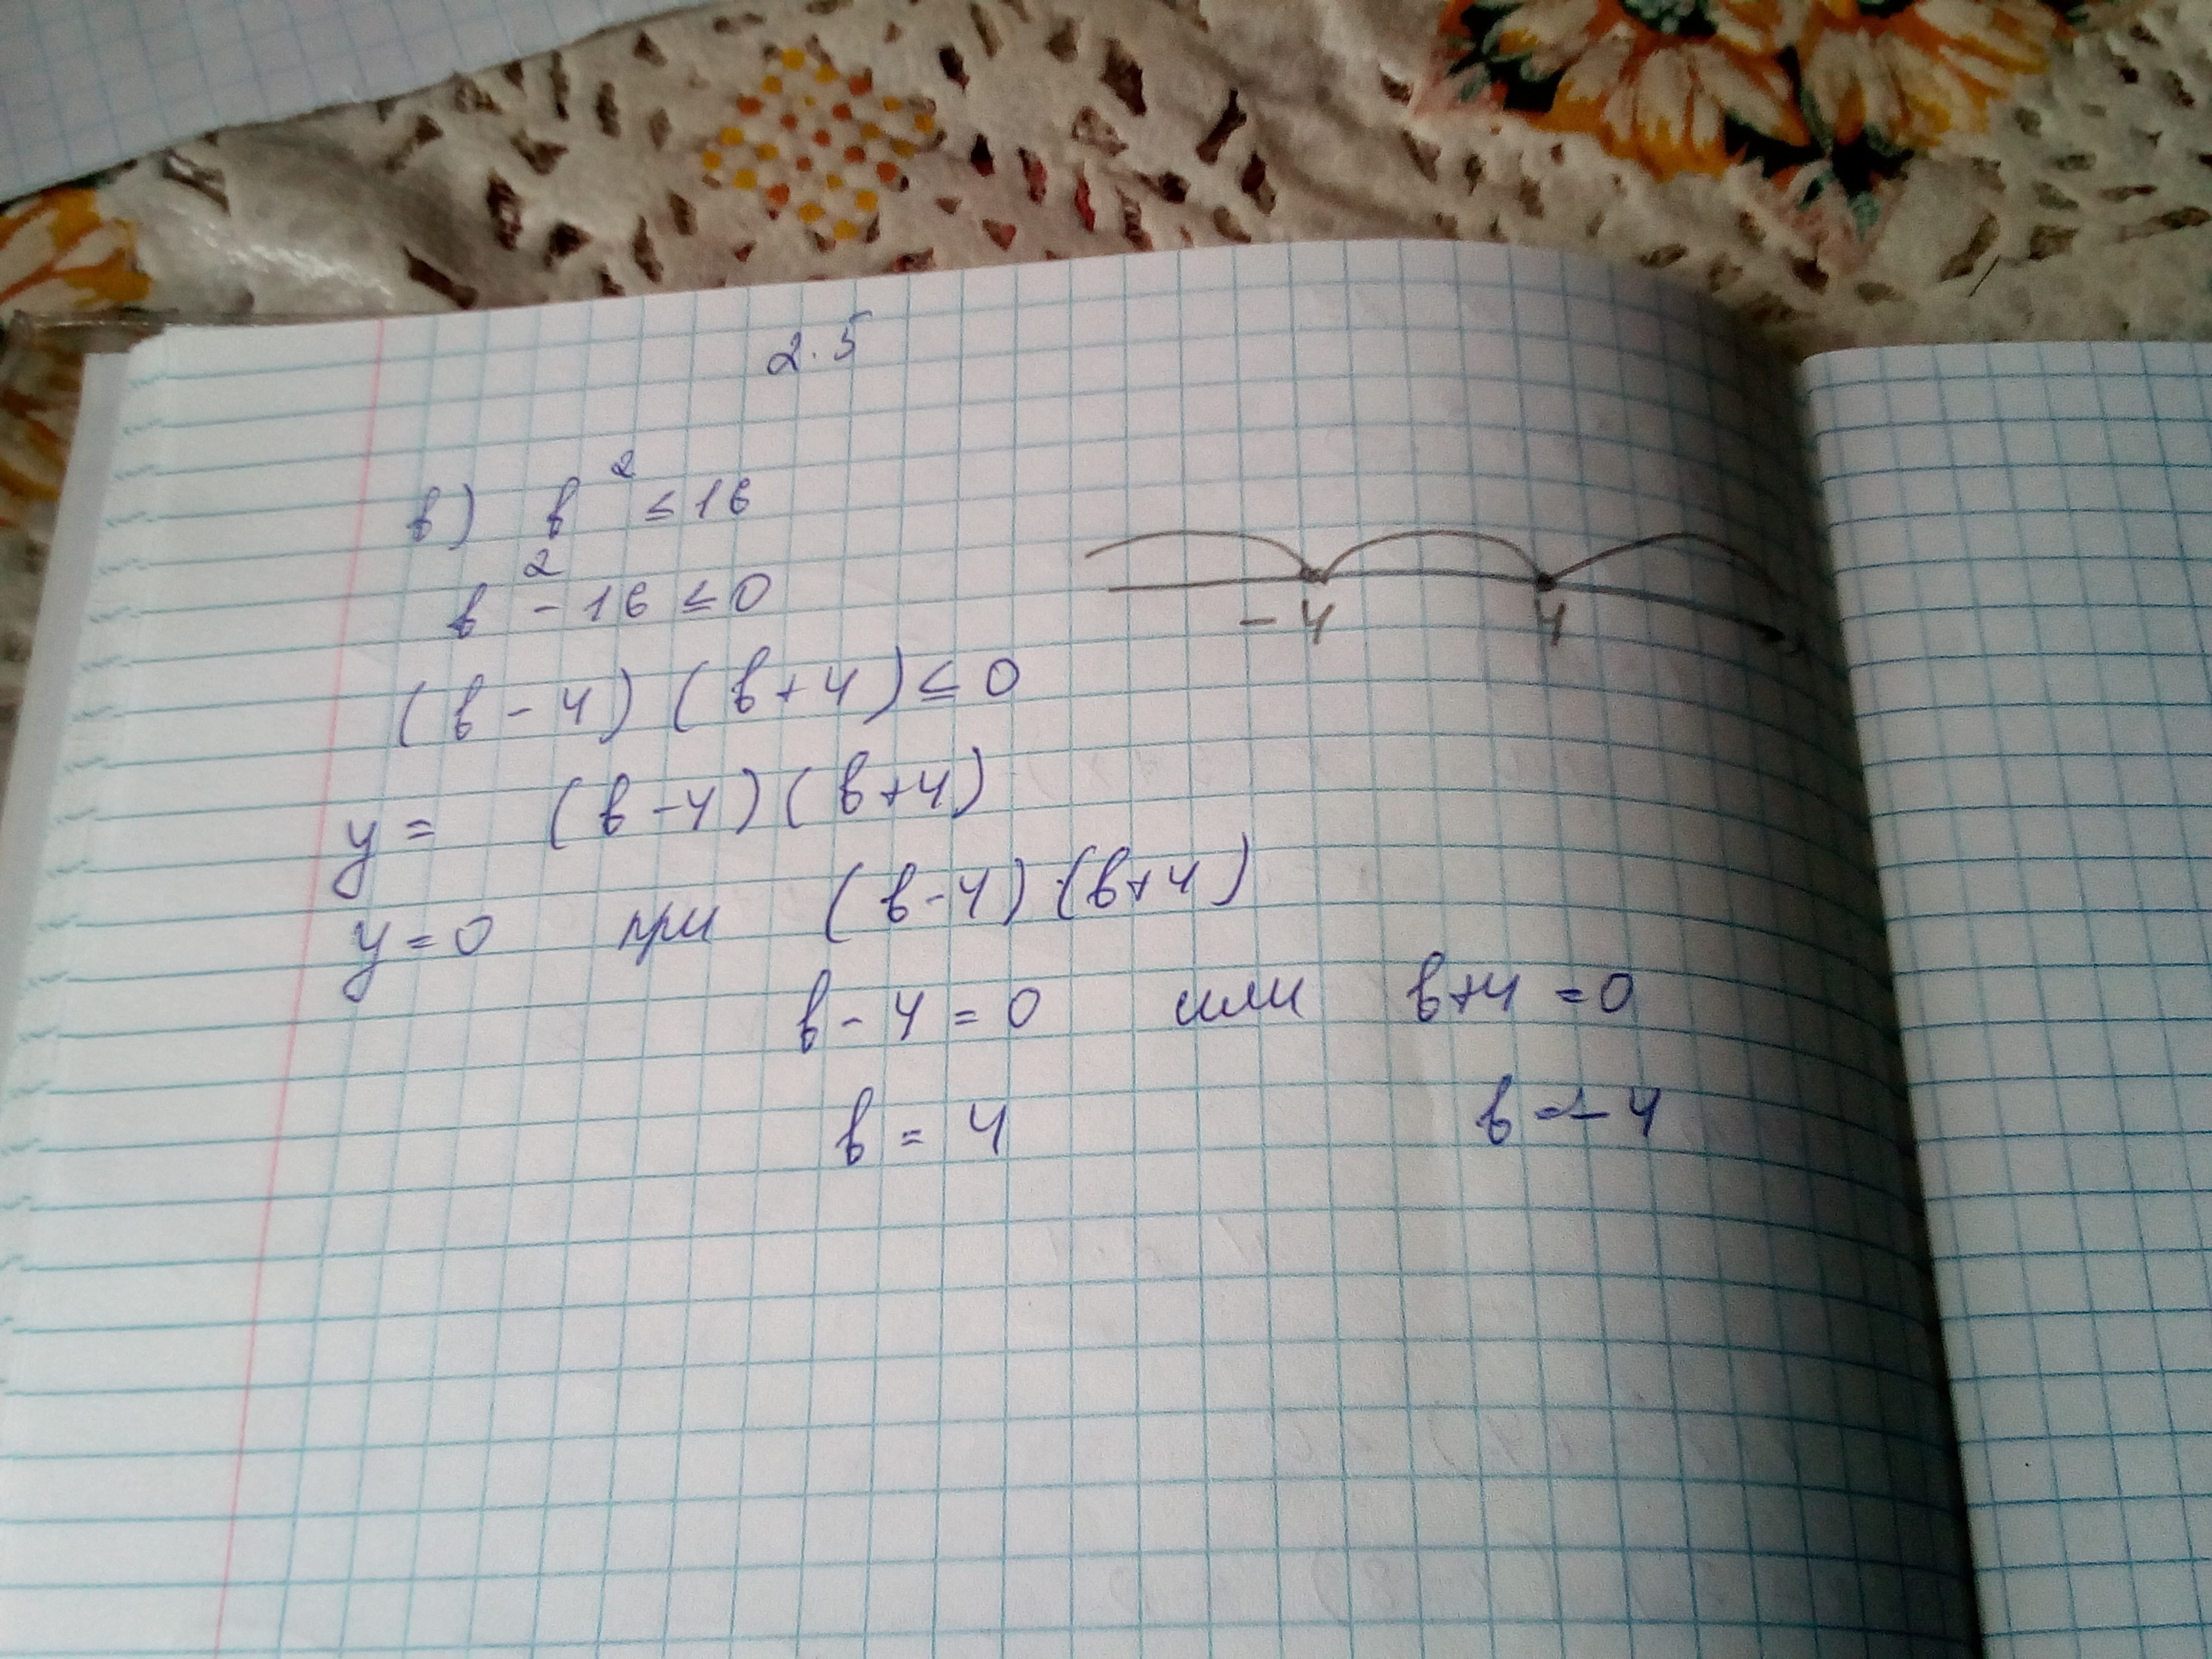 2.5
в) в² ≤ 16
в² - 16 ≤ 0
-4 4 x
(в - 4) (в + 4) ≤ 0
y = (в - 4) (в + 4)
y = 0 при (в - 4) (в + 4)
в - 4 = 0 или в + 4 = 0
в = 4 в = -4